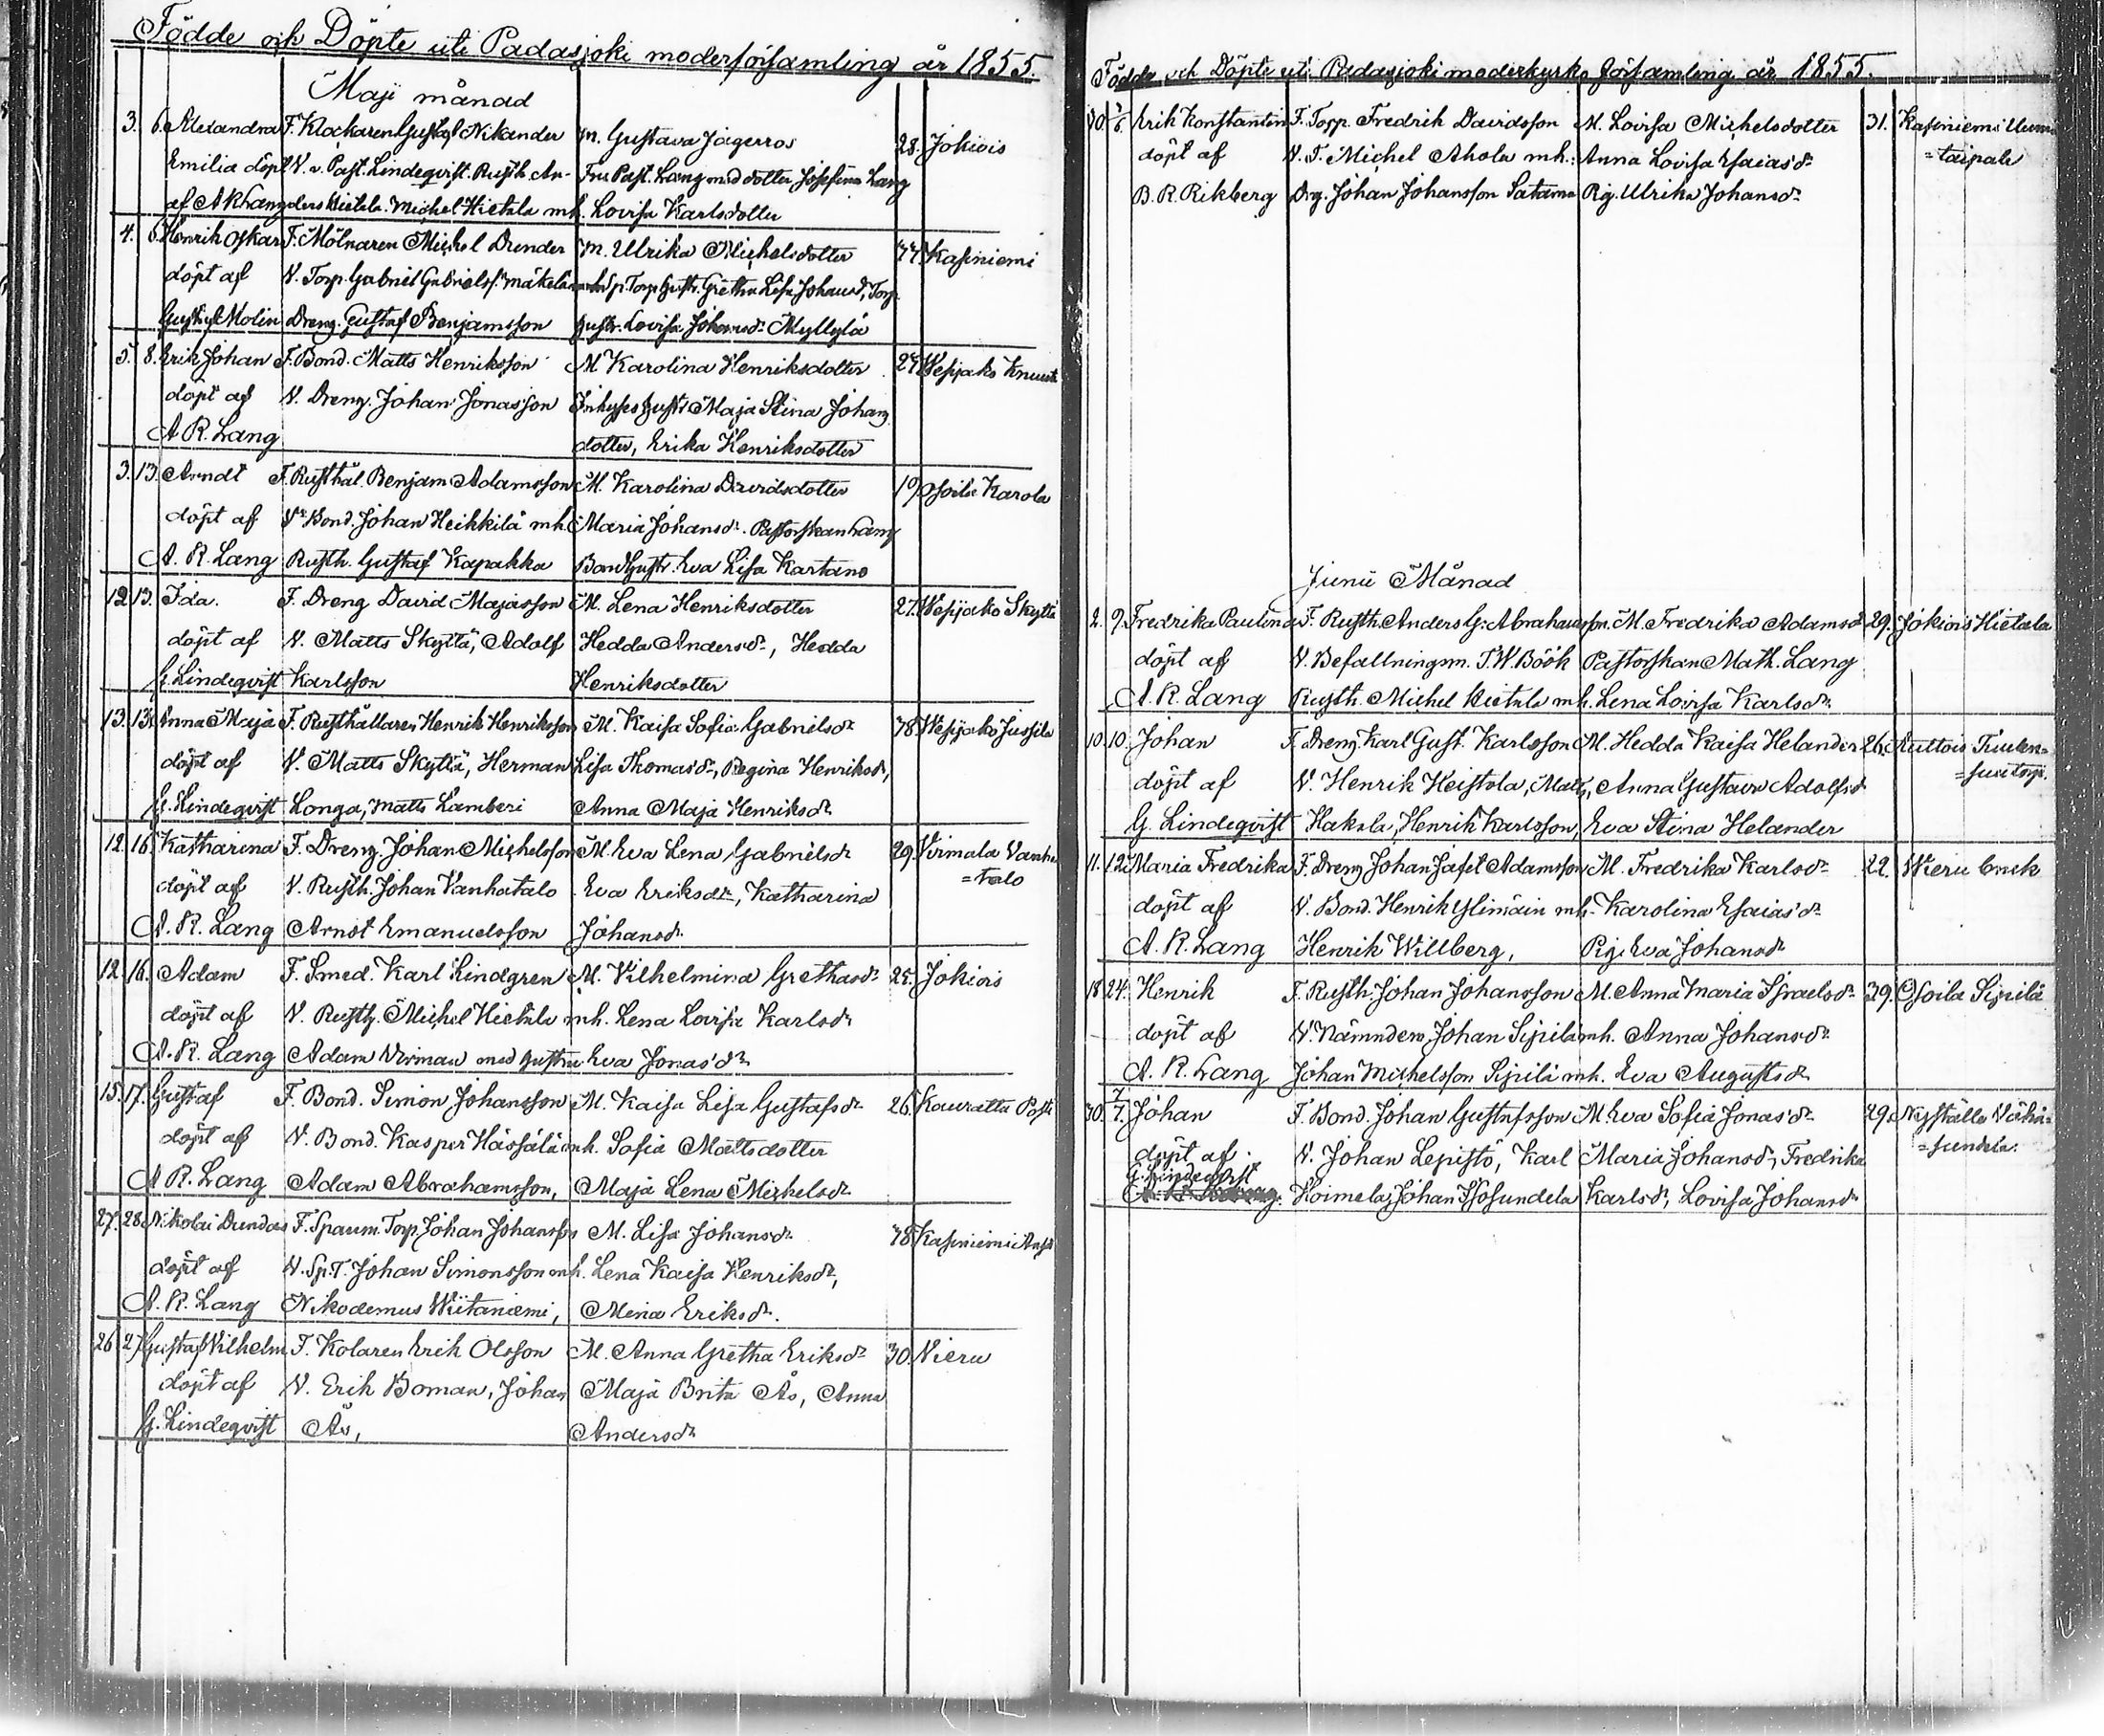 Födde och Döpte uti Padasjoki moderförsamling år 1855.
Maji månad
3. 6. Alexandra F. Klockaren Gustaf Nikander M. Gustava Jägerroos 28. Jokiois
Emilia döpt V. v. Past. Lindeqvist. Rusth. An- Fru Past. Lang med dotter Josefina Lang
af A R Lang ders Hietala. Michel Hietala mh. Lovisa Karlsdotter
4. 6. Henrik Oskar F. Mölnaren Michel Drender M. Ulrika Michelsdotter 44. Kasiniemi
döpt af V. Torp. Gabriel Gabrielss. Mäkelä Sp. Torp. Gustr. Gretha Lisa Johansd, Torp.
Gustaf Molin Dreng. Gustaf Benjamsson Gustr. Lovisa Johansdr. Myllylä
5. 8. Erik Johan F. Bond. Matts Henriksson M. Karolina Henriksdotter 24. Wesijako
döpt af V. Dreng. Johan Jonasson Inhyses Gustr. Maja Stina Johans
A R. Lang dotter, Erika Henriksdotter
3. 13. Arndt F. Rusthål. Benjam Adamsson M. Karolina Davidsdotter 19. Osoila Karola
döpt af V. Bond. Johan Heikkilä mh. Maria Johansdr. Pastorskan Lang
A. R. Lang Rusth. Gustaf Kapakka Bond Gustr. Eva Lisa Kartano
12. 13. Ida. F. Dreng David Majasson M. Lena Henriksdotter 27. Wesijako Skyttä
döpt af V. Matts Skyttä, Adolf Hedda Andersdr., Hedda
G. Lindeqvist Karlsson Henriksdotter
13. 13. Anna Maja F. Rusthållaren Henrik Henriksson M. Kaisa Sofia Gabrielsdr 38. Wesijako Jussila
döpt af V. Matts Skyttä, Herman Lisa Thomasdr., Regina Henriksdr,
G. Lindeqvist Longa, Matts Lamberi Anna Maja Henriksdr.
12. 16. Katharina F. Dreng. Johan Michelsson M. Eva Lena Gabrielsdr 29. Virmala Vanha
döpt af V. Rusth. Johan Vanhatalo Eva Eriksdr, Katharina =talo
A. R. Lang Arnost Emanuelsson Johansdr.
12. 16. Adam F. Smed. Karl Lindgren M. Vilhelmina Grethasdr 25. Jokiois
döpt af V. Rusth. Michel Hietala mh. Lena Lovisa Karlsdr
A. R. Lang Adam Virman med Eva Jonasdr.
15. 17. Gustaf F. Bond. Simon Johansson M. Kaisa Lisa Gustafsdr. 26. Kauratta
döpt af V. Bond. Kasper Hässälä mh. Sofia Mattsdotter
A R. Lang Adam Abrahamsson, Maja Lena Michelsdr.
27. 28. Nikolai F. Sparum. Torp. Johan Johansson M. Lisa Johansdr. 38. Kasiniemi
döpt af V. Sp.T. Johan Simonsson mh. Lena Kaisa Henriksdr,
A. R. Lang Nikodemus Wiitaniemi, Mina Eriksdr.
26. 27. Gustaf Vilhelm F. Kolaren Erik Olsson M. Anna Gretha Eriksdr 30. Nieru
döpt af V. Erik Boman, Johan Maja Brita Ås, Anna
G. Lindeqvist Ås, Andersdr
Födde och Döpte uti Padasjoki moderkyrko församling år 1855.
30. 5/6. Erik Konstantin F. Torp. Fredrich Davidsson M. Lovisa Michelsdotter 31. Kasiniemi
döpt af V. T. Michel Ahola mh. Anna Lovisa Esaiasdr. =taipale
B. R. Rikberg Drg. Johan Johansson Satama Pig. Ulrika Johansdr.
Junii Månad
2. 9. Fredrika Paulina F. Rusth. Anders G. Abrahamsson. M. Fredrika Adamsdr 29. Jokiois Hietala
döpt af V. Befallningsm. T. W. Böök Pastorskan Math. Lang
A. R. Lang Rusth. Michel Hietala mh. Lena Lovisa Karlsdr.
10. 10. Johan F. Dreng Karl Gust. Karlsson M. Hedda Kaisa Helander 26. Auttois
döpt af V. Henrik Heistola, Matts, Anna Gustava Adolfsdr
G. Lindeqvist Hakola, Henrik Karlsson, Eva Stina Helander
11. 12. Maria Fredrika F. Dreng Johan Jafet Adamsson M. Fredrika Karlsdr 22. Nieru bruk
döpt af V. Bond. Henrik Ylimäin mh. Karolina Esaiasdr.
A. R. Lang Henrik Willberg, Pig. Eva Johansdr
18. 24. Henrik F. Rusth. Johan Johansson M. Anna Maria Israelsdr. 39. Osoila Sipilä
döpt af V. Nämndem. Johan Sipilä mh. Anna Johansdr.
A. R. Lang Johan Michelsson Sipilä mh. Eva Augustsdr
30. 7/7. Johan F. Bond. Johan Gustafsson M. Eva Sofia Jonasdr. 29. Nyystälä Vähä-
döpt af V. Johan Lepistö, Karl Maria Johansdr, Fredrika =sundela.
G. Lindeqvist Hoimela, Johan Isosundela Karlsdr, Lovisa Johansdr